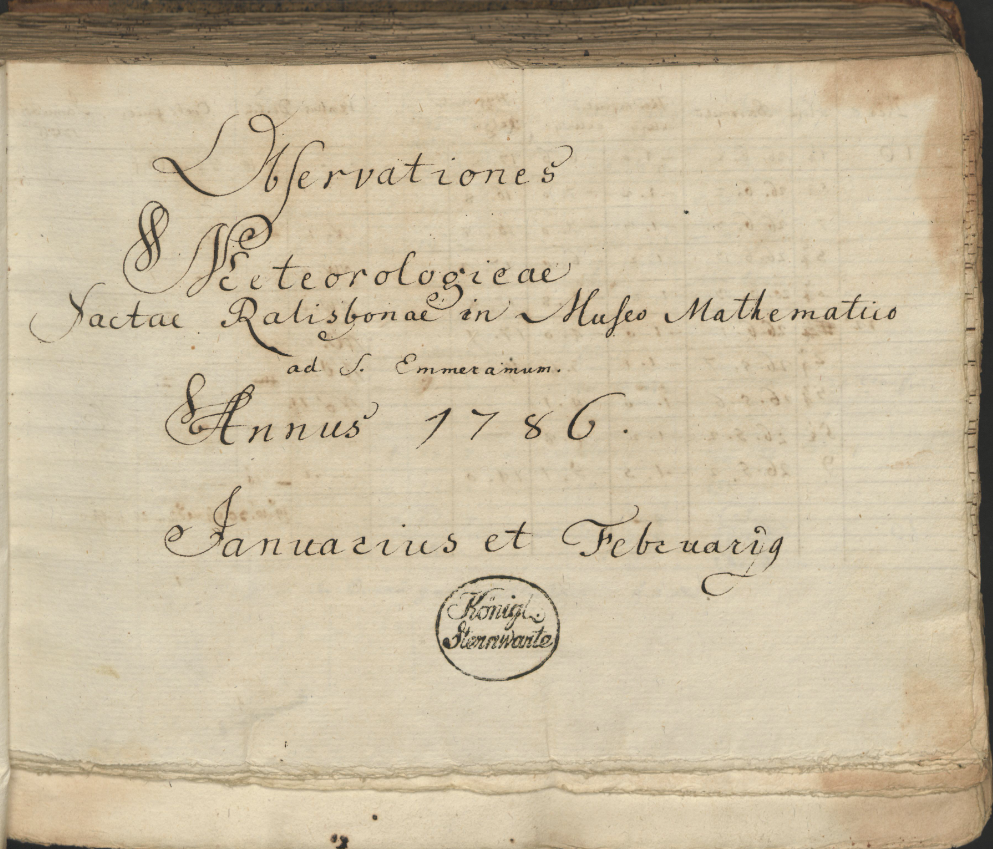 Observationes
Meteorologicae
Factae Ratisbonae in Museo Mathematico
ad S. Emmeramum.
Annus 1786.
Januarius et Februarij9
Königl.
Sternwarte